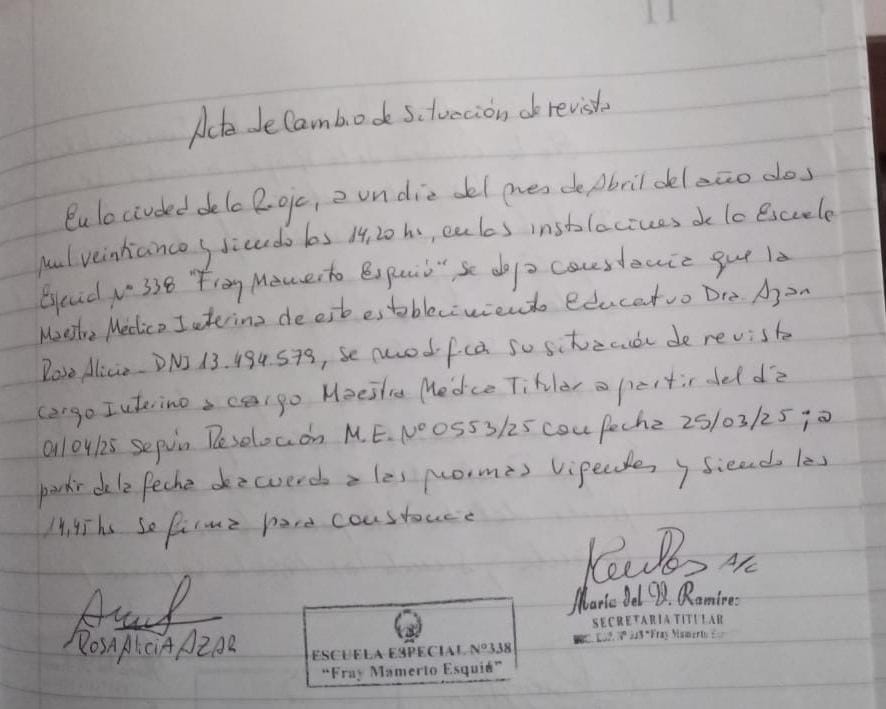 Acta de Cambio de Situación de revista
En la ciudad de la Rioja, a un día del mes de Abril del año dos
mil veinticinco y siendo las 14,20 hs, en las instalaciones de la Escuela
Especial N° 338 "Fray Mamerto Esquiú" se deja constancia que la
Maestra Médica Interina de este establecimiento educativo Dra. Azar
Rosa Alicia - DNI 13.494.579, se modifica su situación de revista
cargo Interino a cargo Maestra Médica Titular a partir del día
01/04/25 según Resolución M.E. N° 0553/25 con fecha 25/03/25; a
partir de la fecha de acuerdo a las normas vigentes y siendo las
14,45 hs se firma para constancia
A/c
María Del V. Ramírez
SECRETARIA TITULAR
ROSA ALICIA AZAR
ESCUELA ESPECIAL N°338
"Fray Mamerto Esquiú"